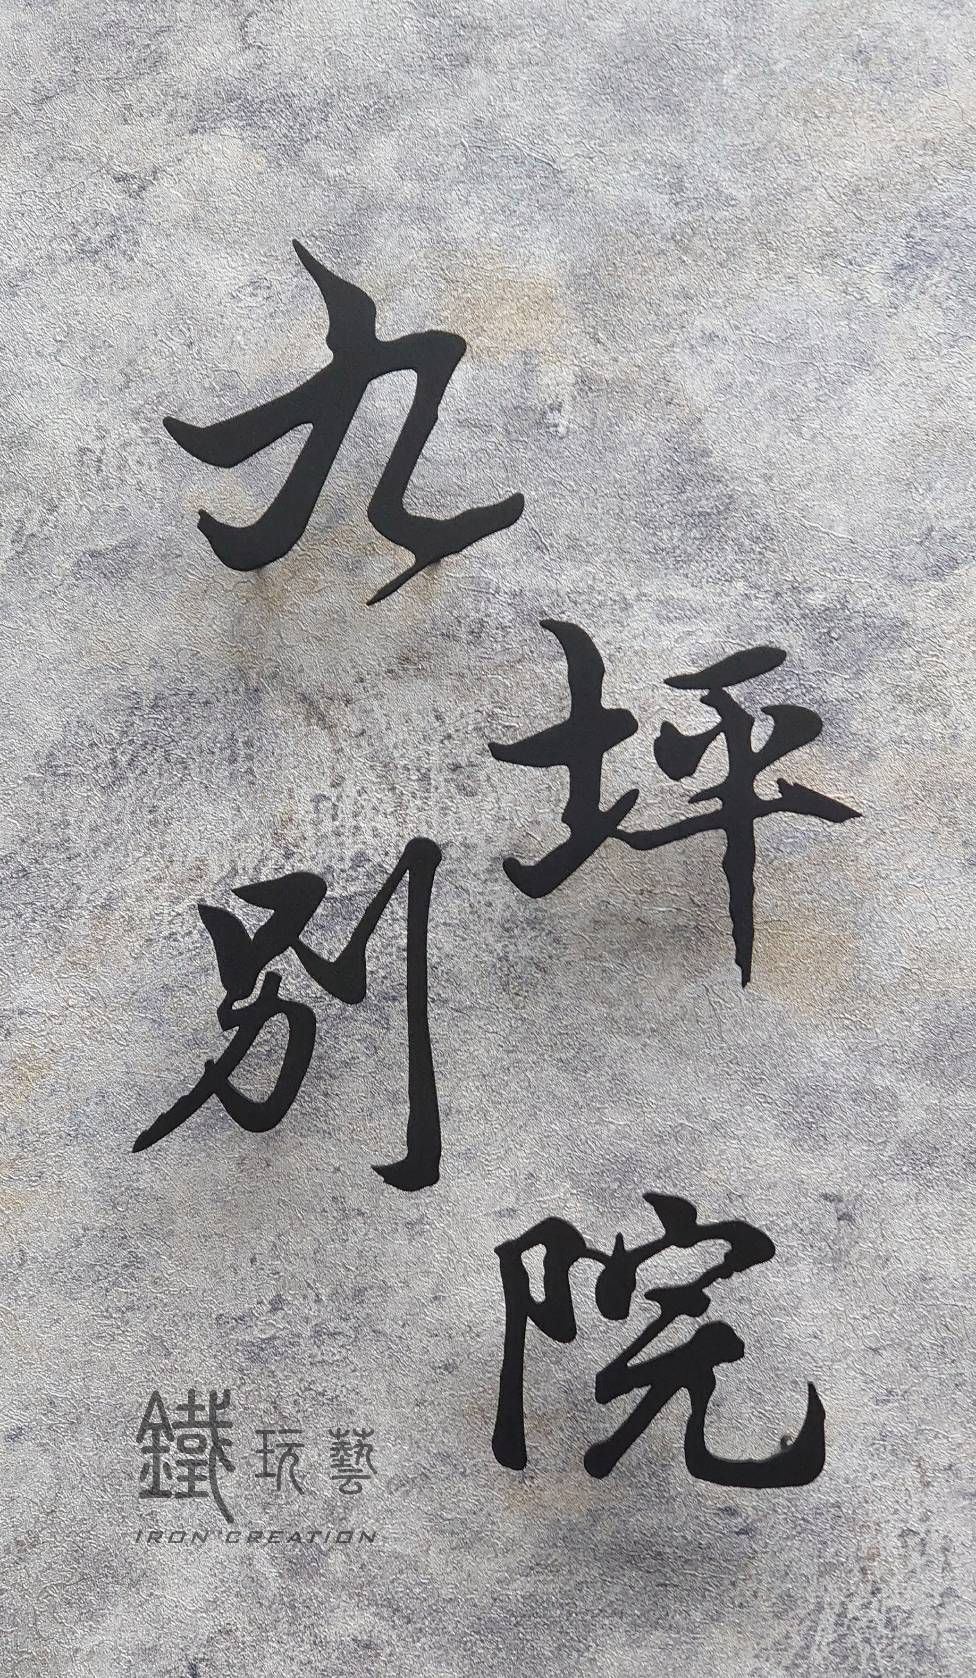 九
坪
別
院
鐵玩藝
IRON CREATION